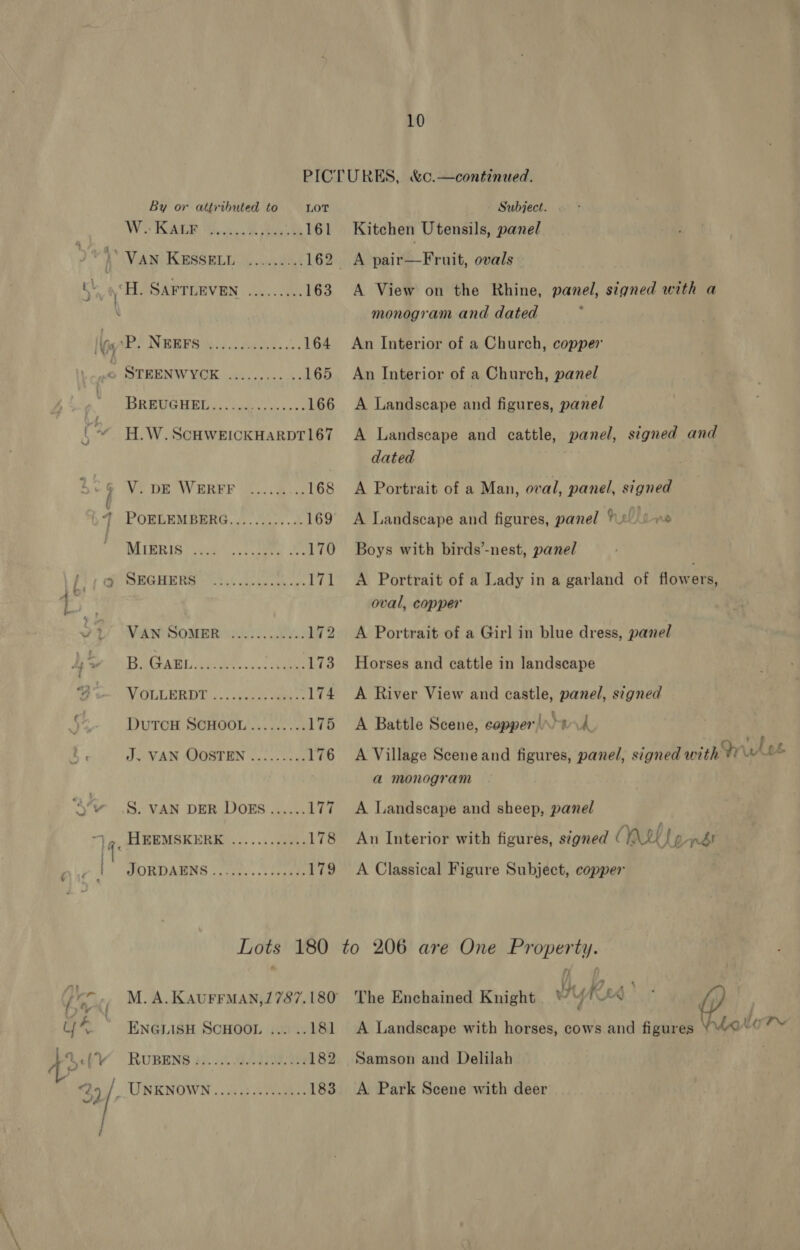 10
PICTURES, &c.—continued.
By or attributed to LOT Subject.
W. KALF ............... 161 Kitchen Utensils, panel
VAN KESSELL ......... 162 A pair—Fruit, ovals
H. SAFTLEVEN ......... 163 A View on the Rhine, panel, signed with a
monogram and dated
P. NEEFS ............... 164 An Interior of a Church, copper
STEENWYCK ............ 165 An Interior of a Church, panel
BREUGHEL ............... 166 A Landscape and figures, panel
H. W. SCHWEICKHARDT 167 A Landscape and cattle, panel, signed and
dated
V. DE WERFF ......... 168 A Portrait of a Man, oval, panel, signed
POELEMBERG ............ 169 A Landscape and figures, panel
MIERIS ............... 170 Boys with birds'-nest, panel
SEGHERS ............... 171 A Portrait of a Lady in a garland of flowers,
oval, copper
VAN SOMER ............ 172 A Portrait of a Girl in blue dress, panel
B. GAEL ............... 173 Horses and cattle in landscape
VOLLERDT ............... 174 A River View and castle, panel, signed
DUTCH SCHOOL ......... 175 A Battle Scene, copper
J. VAN OOSTEN ......... 176 A Village Scene and figures, panel, signed with
a monogram
S. VAN DER DOES ...... 177 A Landscape and sheep, panel
HEEMSKERK ............ 178 An Interior with figures, signed
JORDAENS ............... 179 A Classical Figure Subject, copper
Lots 180 to 206 are One Property.
M. A. KAUFFMAN, 1787. 180 The Enchained Knight
ENGLISH SCHOOL ...... 181 A Landscape with horses, cows and figures
RUBENS ............... 182 Samson and Delilah
UNKNOWN ............... 183 A Park Scene with deer